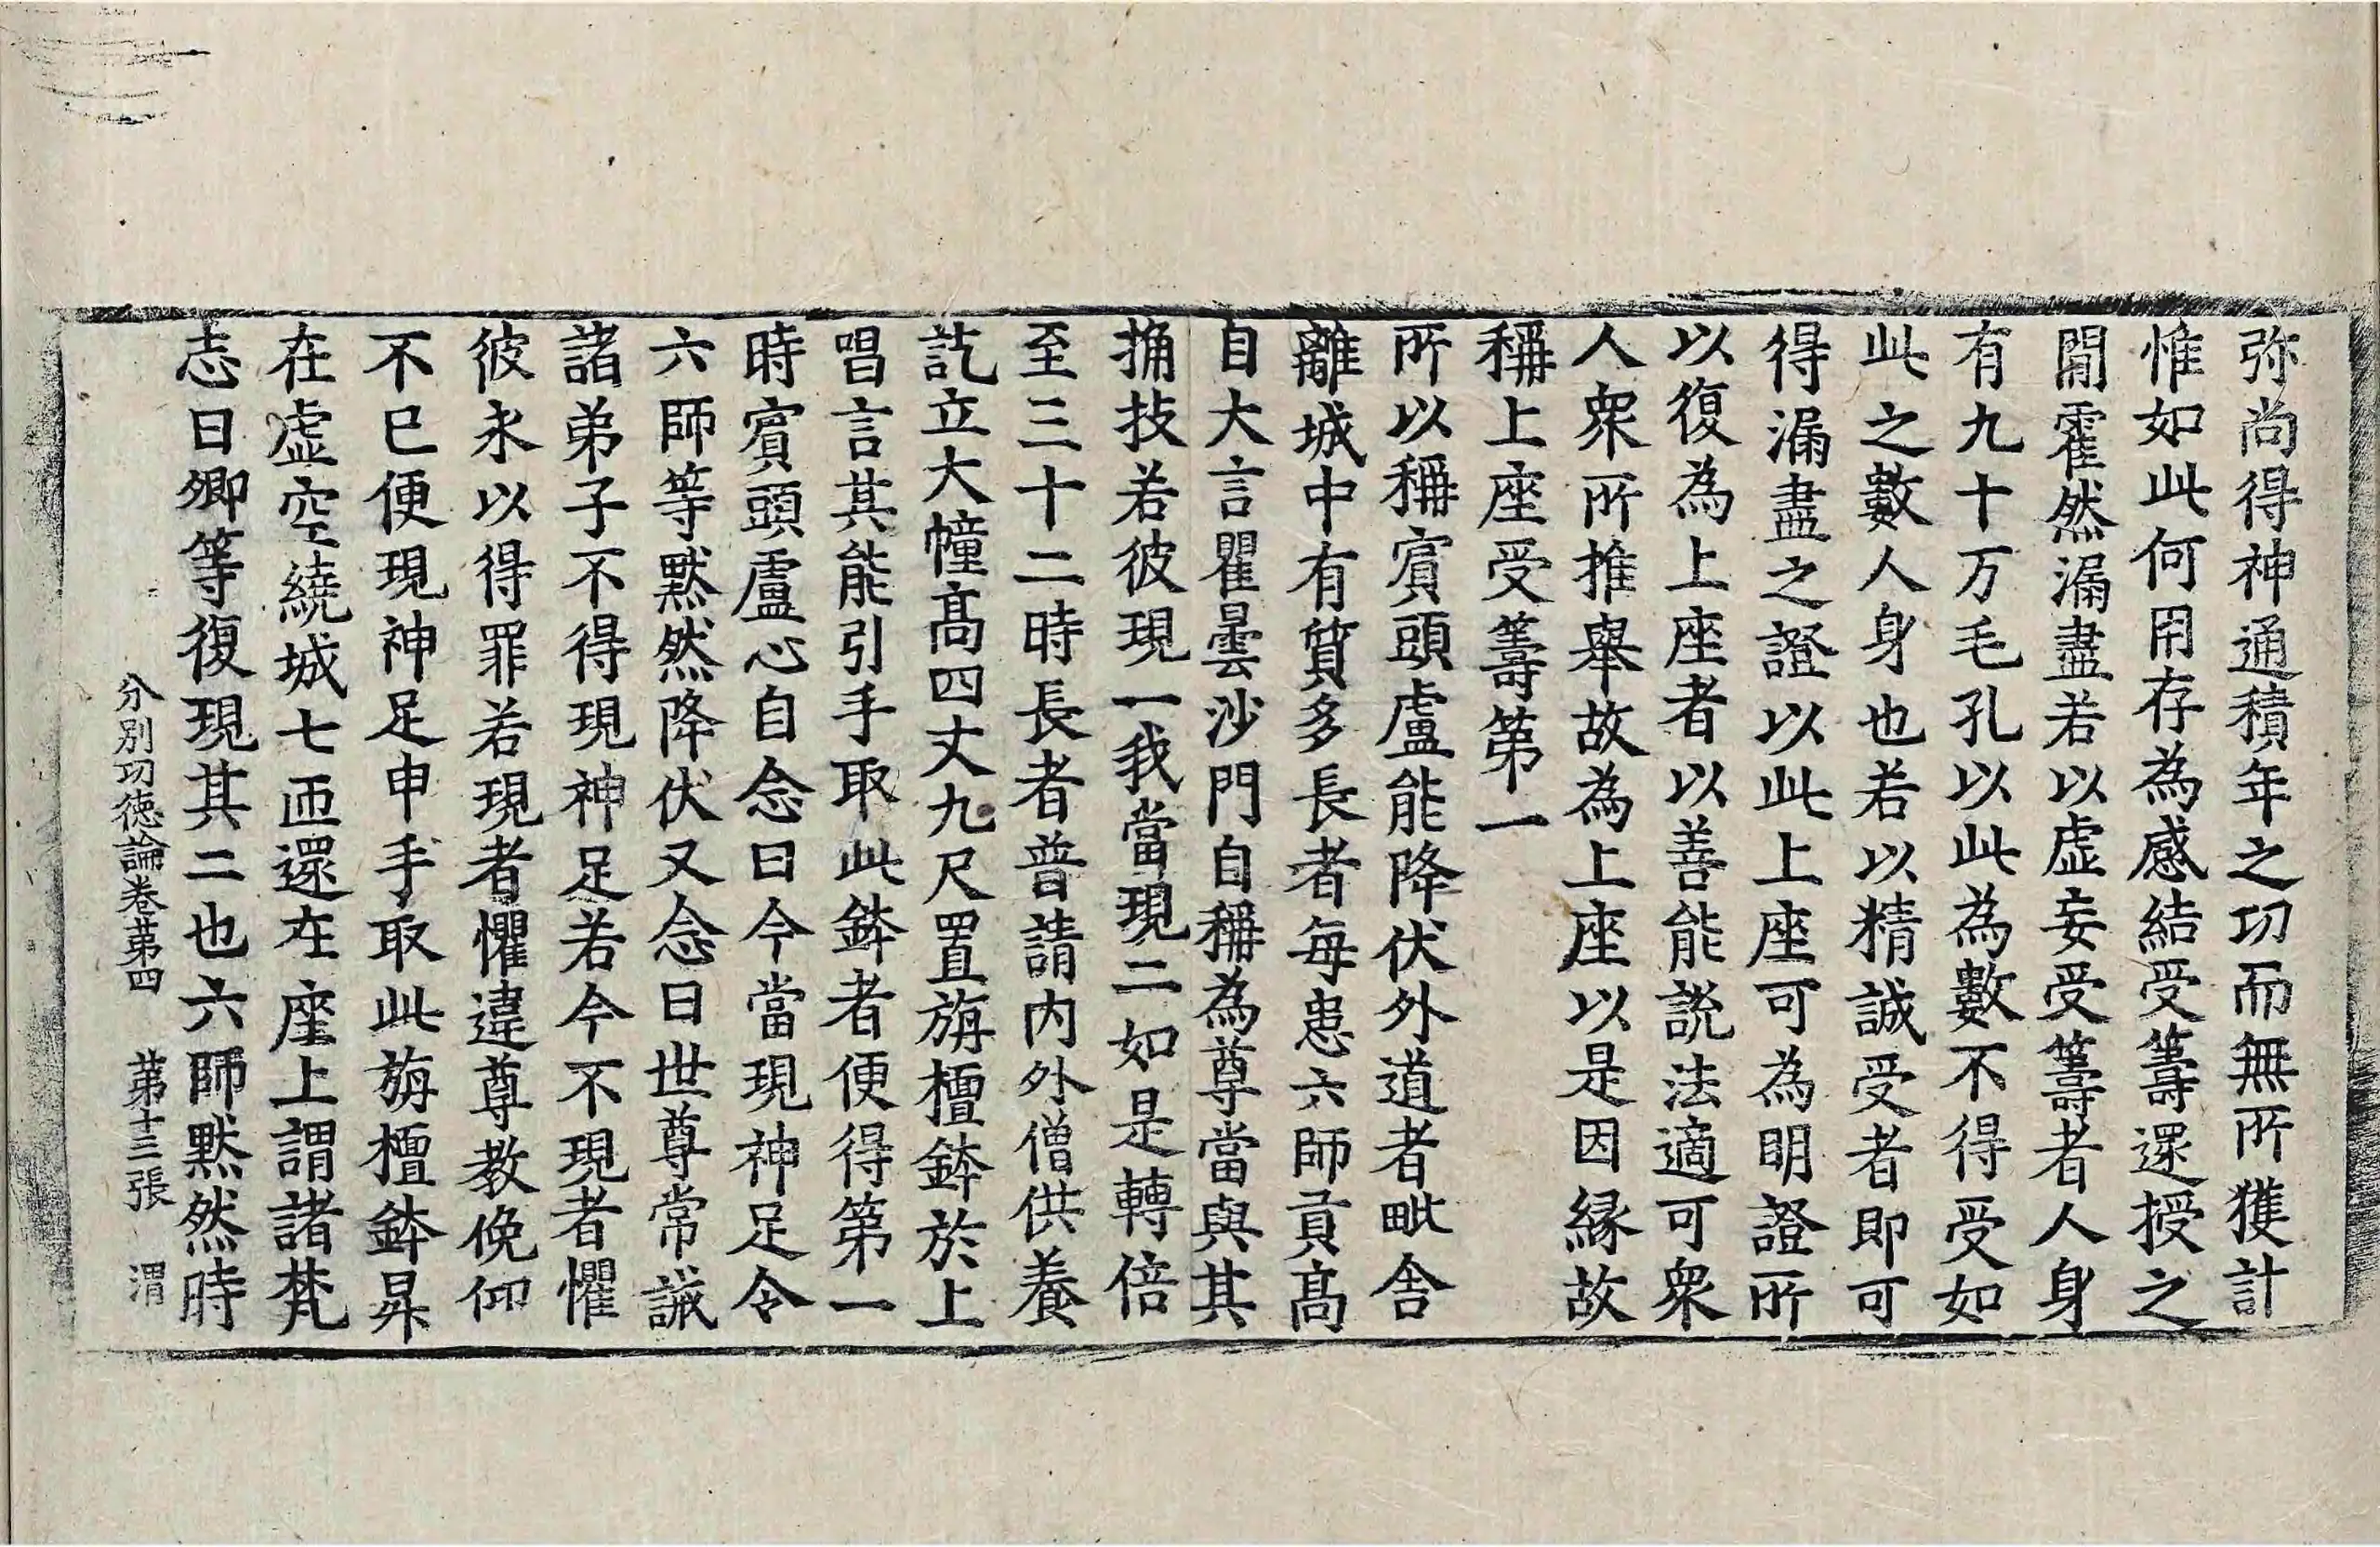 弥尚得神通積年之功而無所獲計
惟如此何用存為感結受籌還授之
閒霍然漏盡若以虛妄受籌者人身
有九十万毛孔以此為數不得受如
此之數人身也若以精誠受者即可
得漏盡之證以此上座可為明證所
以復為上座者以善能說法適可衆
人衆所推舉故為上座以是因縁故
稱上座受籌第一
所以稱賔頭盧能降伏外道者毗舍
離城中有質多長者每患六師貢髙
自大言瞿曇沙門自稱為尊當與其
捔技若彼現一我當現二如是轉倍
至三十二時長者普請内外僧供養
訖立大幢髙四丈九尺置旃檀鉢於上
唱言其能引手取此鉢者便得第一
時賔頭盧心自念曰今當現神足令
六師等黙然降伏又念曰世尊常誡
諸弟子不得現神足若今不現者懼
彼永以得罪若現者懼違尊教俛仰
不巳便現神足申手取此旃檀鉢昇
在虛空繞城七匝還在座上謂諸梵
志曰卿等復現其二也六師黙然時
分別功徳論卷第四 第十三張 渭